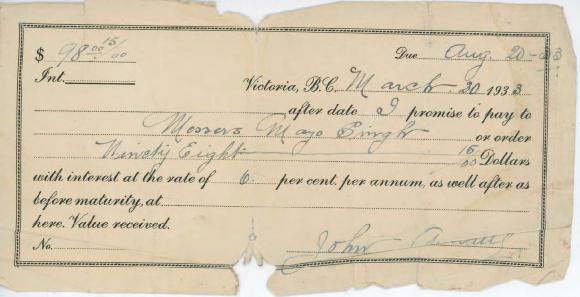 $ 98 00 15/00 Due Aug. 20-33
Int.
Victoria, B.C. March 20 1933
after date I promise to pay to
Messers Mayo Singh or order
Ninety Eight 15/00 Dollars
with interest at the rate of 6 per cent. per annum, as well after as
before maturity, at
here. Value received.
No. John